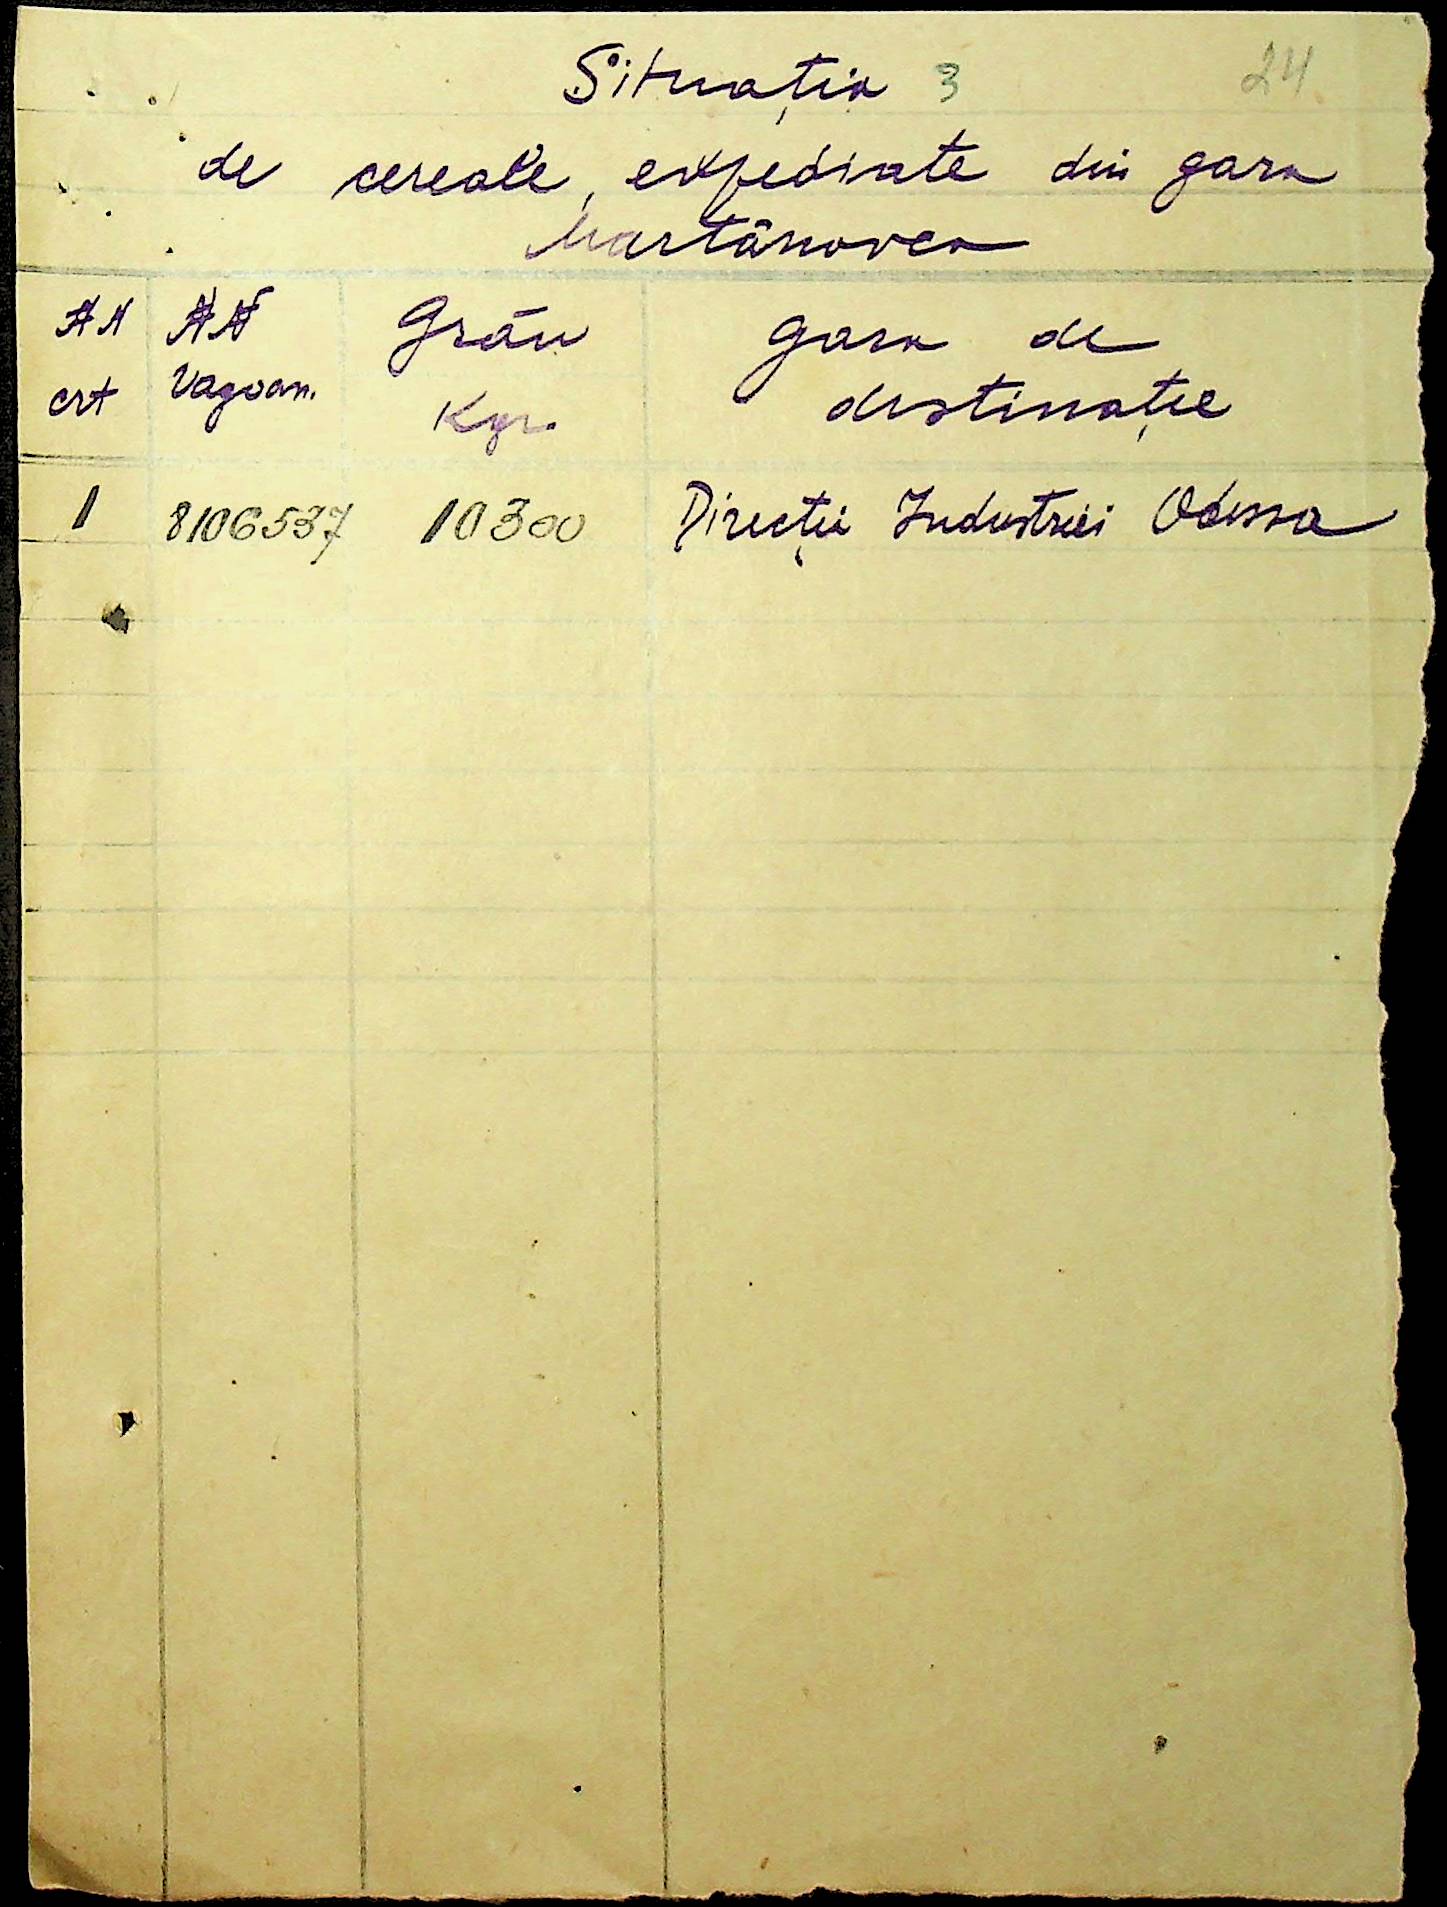 Situația 3 24
de cereale, expediate din gara
Martânovca
NN NN Grâu gara de
crt Vagoan. Kgr. destinație
1 8106537 10300 Direcții Industriei Odessa